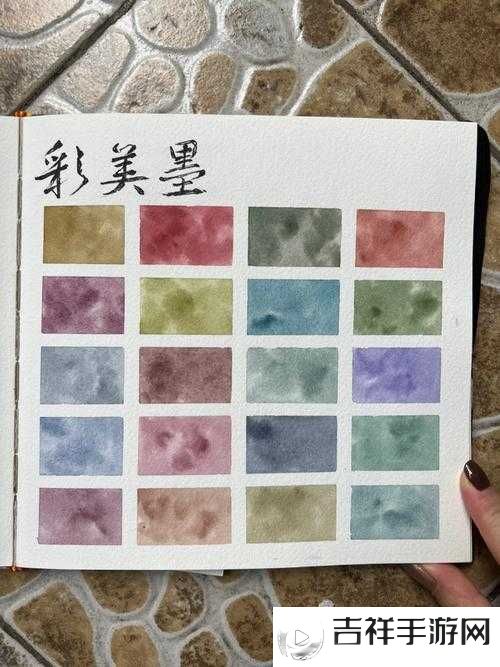 彩美墨
吉祥手游网